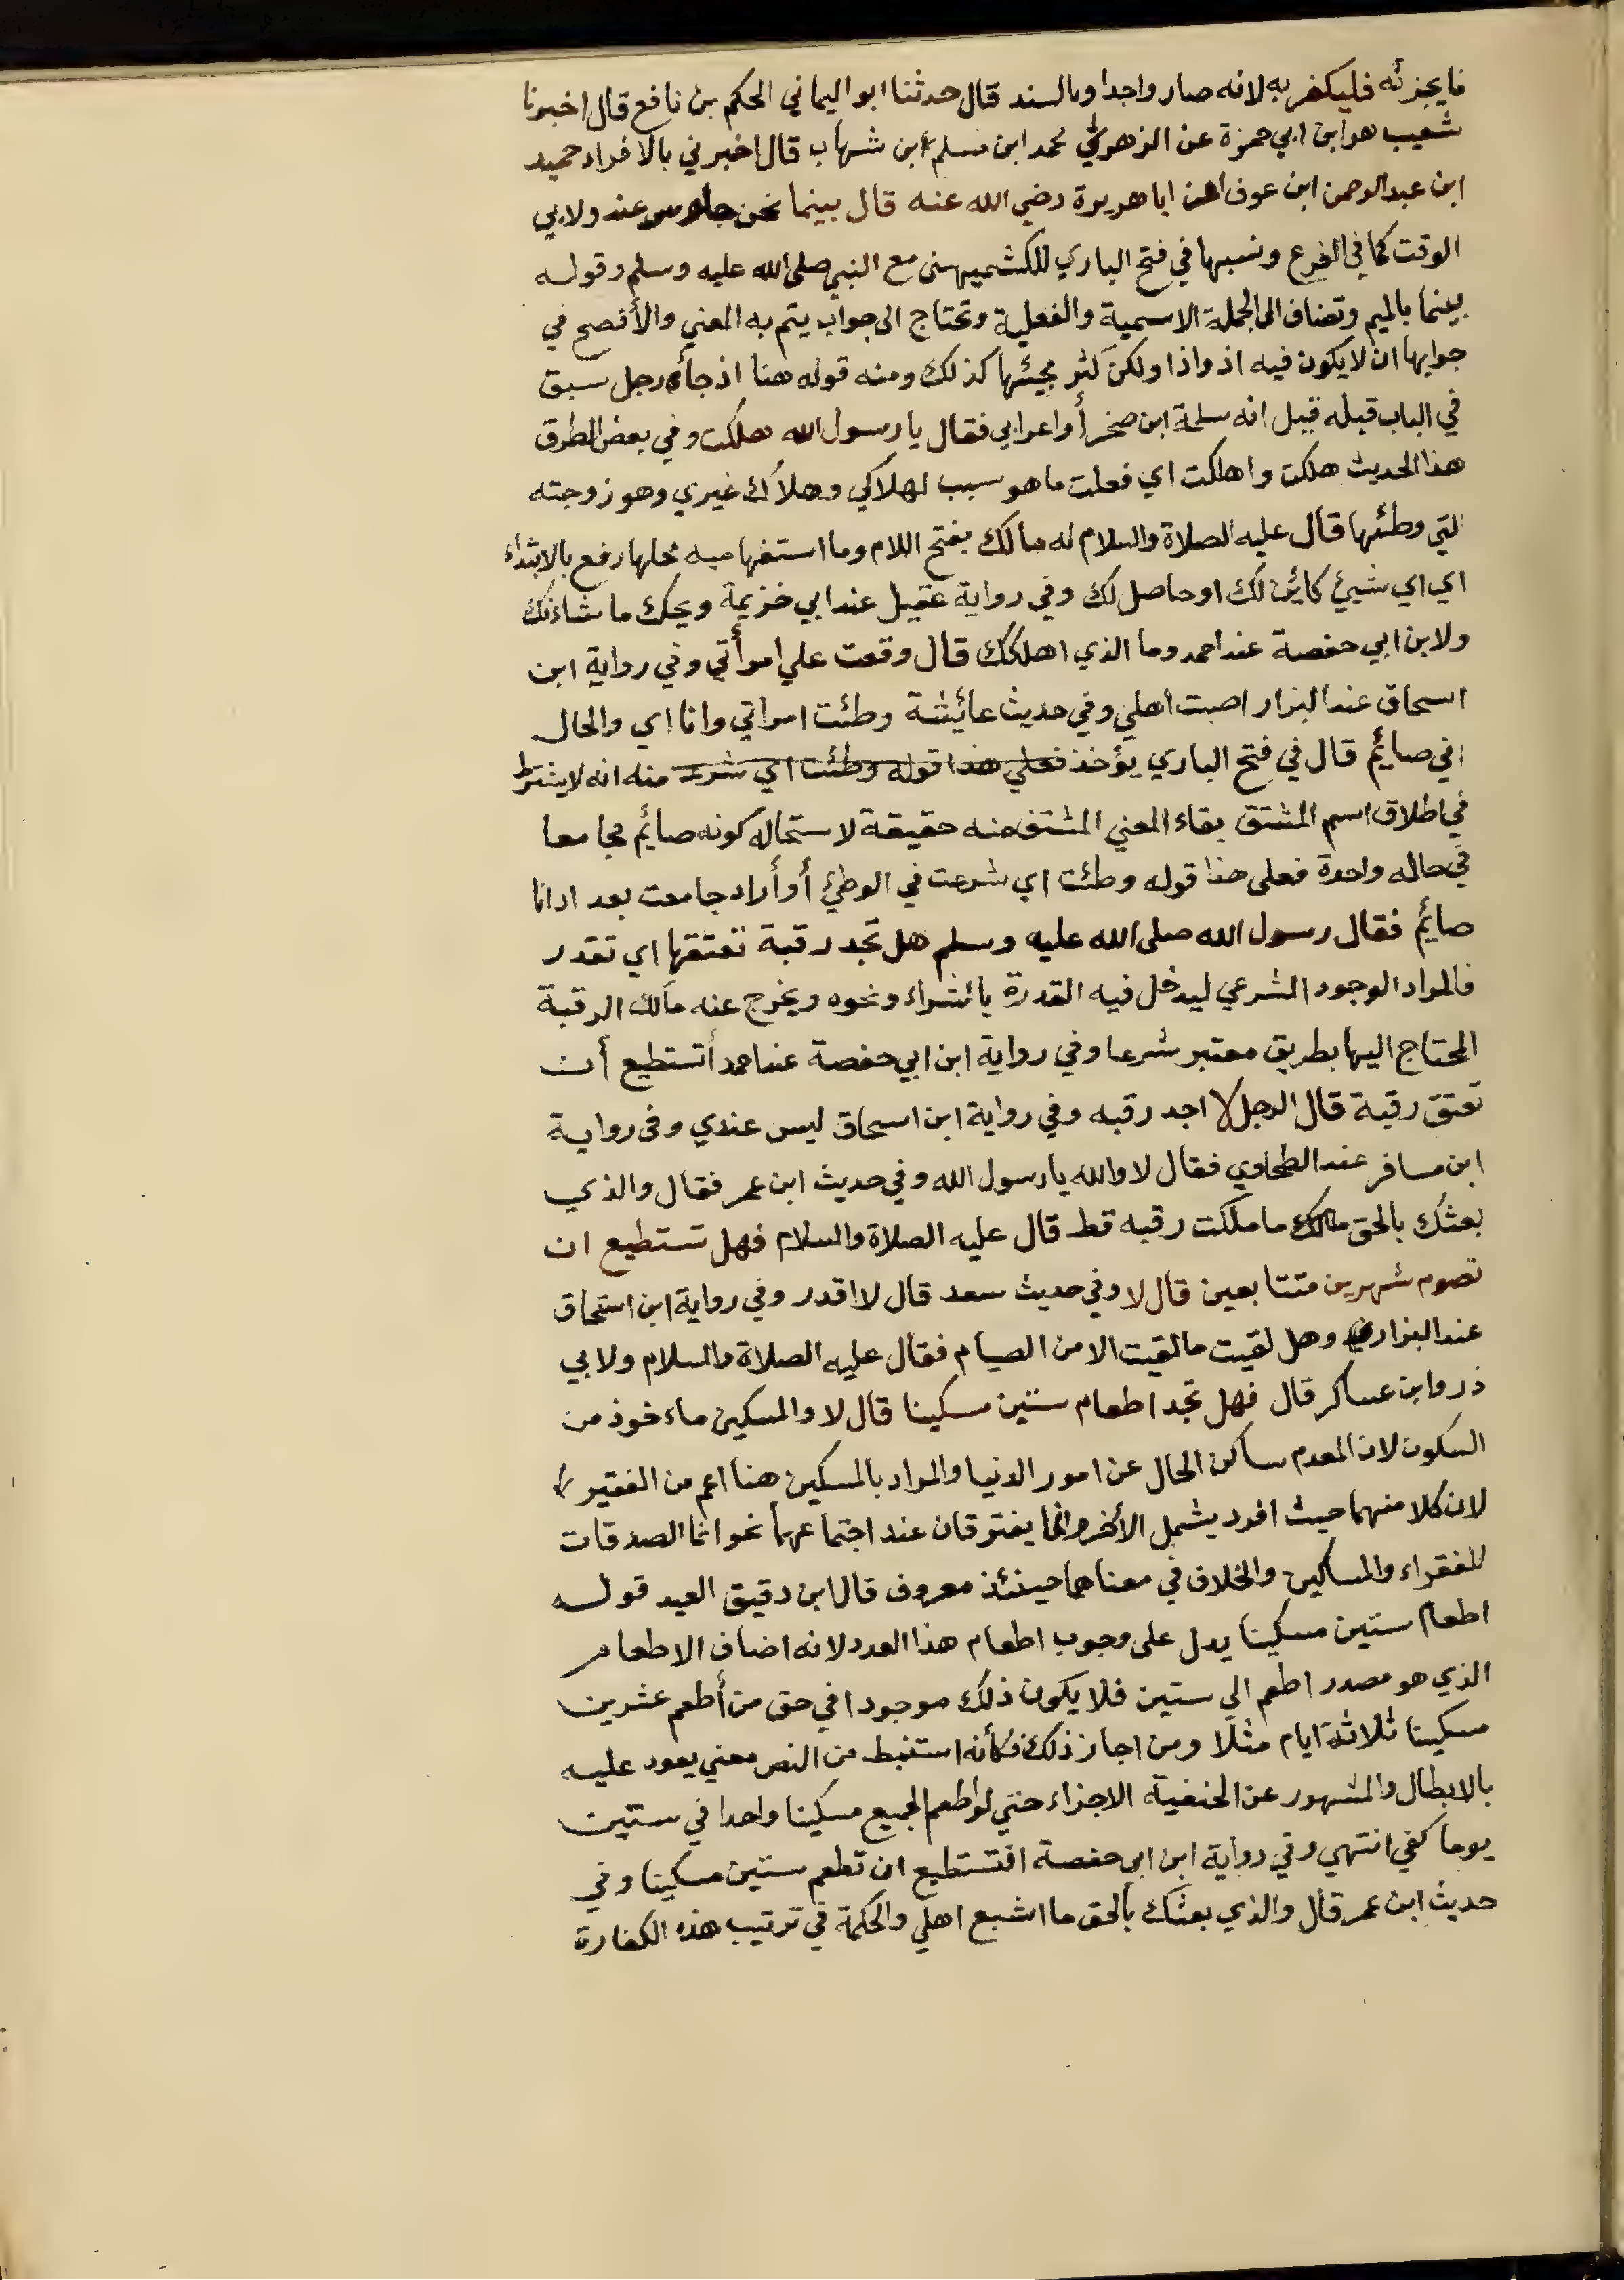 ما يجزئه فليكفر به لانه صار واجدا وبالسند قال حدثنا ابو اليماني الحكم بن نافع قال اخبرنا
شعيب هو ابن ابي حمزة عن الزهري محمد ابن مسلم ابن شهاب قال اخبرني بالافراد حميد
ابن عبد الرحمن ابن عوف ان ابا هريرة رضي الله عنه قال بينما نحن جلوس عند ولابي
الوقت كما في الفرع ونسبها في فتح الباري للكشميهني مع النبي صلى الله عليه وسلم وقوله
بينما بالميم وتضاف الى الجملة الاسمية والفعلية وتحتاج الى جواب يتم به المعني والأفصح في
جوابها ان لا يكون فيه اذ واذا ولكن كثر مجيئها كذلك ومنه قوله هنا اذ جأه رجل سبق
في الباب قبله قيل انه سلمة ابن صخر أو اعرابي فقال يا رسول الله هلكت وفي بعض الطرق
هذا الحديث هلكت واهلكت اي فعلت ما هو سبب لهلاكي وهلاك غيري وهو زوجته
التي وطئها قال عليه الصلاة والسلام له مالك بفتح اللام وما استفهاميه محلها رفع بالابتداء
اي اي شيئ كائن لك او حاصل لك وفي رواية عقيل عند ابي خزيمة ويحك ما شاءنك
ولابن ابي حفصة عند احمد وما الذي اهلكك قال وقعت علي امرأتي وفي رواية ابن
اسحاق عند البزار اصبت اهلي وفي حديث عائيشة وطئت امراتي وانا اي والحال
اني صايئم قال في فتح الباري يؤخذ فعلي هذا قوله وطئت اي شرعت منه انه لا يشترط
في اطلاق اسم المشتق بقاء المعني المشتق منه حقيقة لاستحاله كونه صايئم مجامعا
في حاله واحدة فعلى هذا قوله وطئت اي شرعت في الوطئ أو أراد جامعت بعد اذ انا
صايئم فقال رسول الله صلى الله عليه وسلم هل تجد رقبة تعتقها اي تقدر
فالمراد الوجود الشرعي ليدخل فيه القدرة بالشراء ونحوه ويخرج عنه مالك الرقبة
المحتاج اليها بطريق معتبر شرعا وفي رواية ابن ابي حفصة عند احمد أتستطيع أن
تعتق رقبة قال الرجل لا اجد رقبه وفي رواية ابن اسحاق ليس عندي وفي رواية
ابن مسافر عند الطحاوي فقال لا والله يا رسول الله وفي حديث ابن عمر فقال والذي
بعثك بالحق مالك ما ملكت رقبه قط قال عليه الصلاة والسلام فهل تستطيع ان
تصوم شهرين متتابعين قال لا وفي حديث سعد قال لا اقدر وفي رواية ابن اسحاق
عند البزار وهل لقيت ما لقيت الا من الصيام فقال عليه الصلاة والسلام ولابي
ذر وابن عساكر قال فهل تجد اطعام ستين مسكينا قال لا والمسكين ماءخوذ من
السكون لان المعدم ساكن الحال عن امور الدنيا والمراد بالمسكين هنا اعم من الفقير
لان كلا منهما حيث افرد يشمل الأخر وانما يفترقان عند اجتماعهما نحو انما الصدقات
للفقراء والمساكين والخلاف في معناهما حينئذ معروف قال ابن دقيق العيد قوله
اطعام ستين مسكينا يدل على وجوب اطعام هذا العدد لانه اضاف الاطعام
الذي هو مصدر اطعم الي ستين فلا يكون ذلك موجودا في حق من أطعم عشرين
مسكينا ثلاثة ايام مثلا ومن اجاز ذلك فكأنه استنبط من النص معني يعود عليه
بالابطال والمشهور عن الحنفية الاجزاء حتي لو اطعم الجميع مسكينا واحدا في ستين
يوما كفي انتهي وفي رواية ابن ابي حفصة افتستطيع ان تطعم ستين مسكينا وفي
حديث ابن عمر قال والذي بعثك بالحق ما اشبع اهلي والحكمة في ترتيب هذه الكفارة